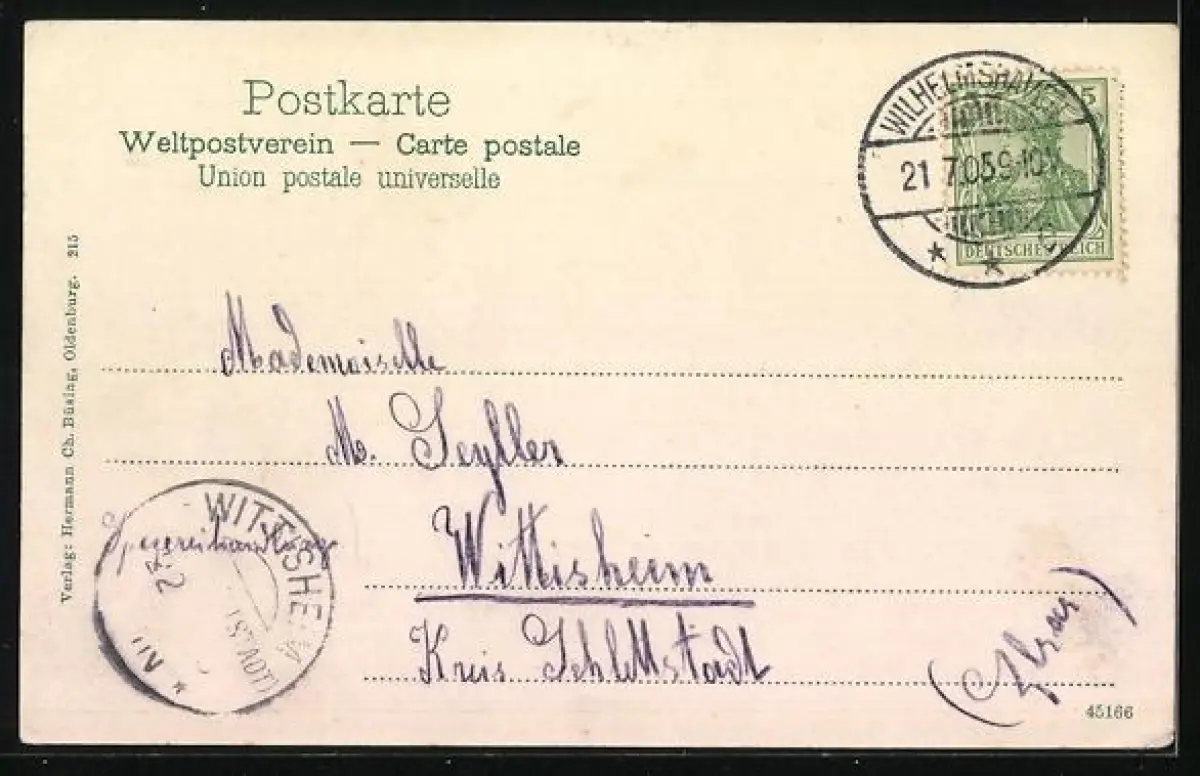 Postkarte
Weltpostverein — Carte postale
Union postale universelle
WILHELMSHAVEN
21 7.05.9-10V
* * c
5
DEUTSCHES REICH
Mademoiselle
M. Seyller
Spezereihandlung
Wittisheim
Kreis Schlettstadt
(Elsass)
WITTISHEIM
STADT)
Verlag: Hermann Ch. Büsing, Oldenburg. 215
45166